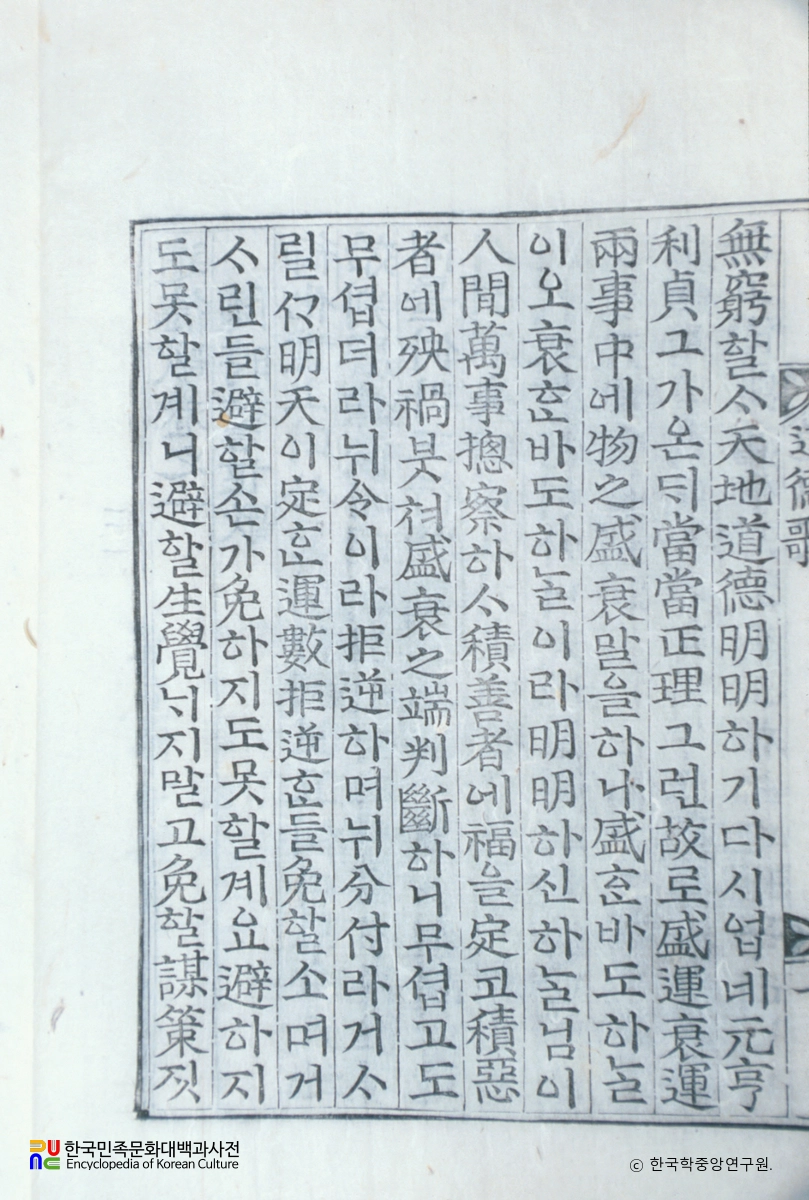 無窮할ᄉᆞ天地道德明明하기다시업네元亨
利貞그가온ᄃᆡ當當正理그런故로盛運衰運
兩事中에物之盛衰말을하니盛ᄒᆞᆫ바도하ᄂᆞᆯ
이오衰ᄒᆞᆫ바도하ᄂᆞᆯ이라明明하신하ᄂᆞᆯ님이
人間萬事摠察하ᄉᆞ積善者에福을定고積惡
者에殃禍븟쳐盛衰之端判斷하니무셥고도
무셥더라뉘令이라拒逆하며뉘分付라거ᄉᆞ
릴ᄭᆞ明天이定ᄒᆞᆫ運數拒逆ᄒᆞᆫ들免할소며거
ᄉᆞ린들避할손가免하지도못할계요避하지
도못할계니避할生覺ᄂᆡ지말고免할謀策짓
道德歌
한국민족문화대백과사전
Encyclopedia of Korean Culture
ⓒ 한국학중앙연구원.